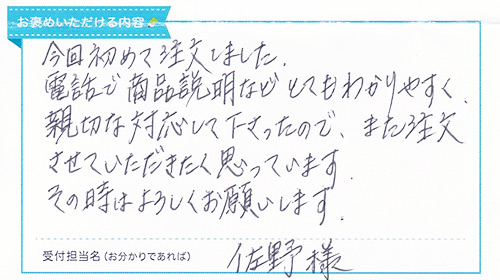 お褒めいただける内容
今回初めて注文しました.
電話で商品説明などとてもわかりやすく、
親切な対応して下さったので、また注文
させていただきたく思っています.
その時はよろしくお願いします.
受付担当名（お分かりであれば） 佐野様